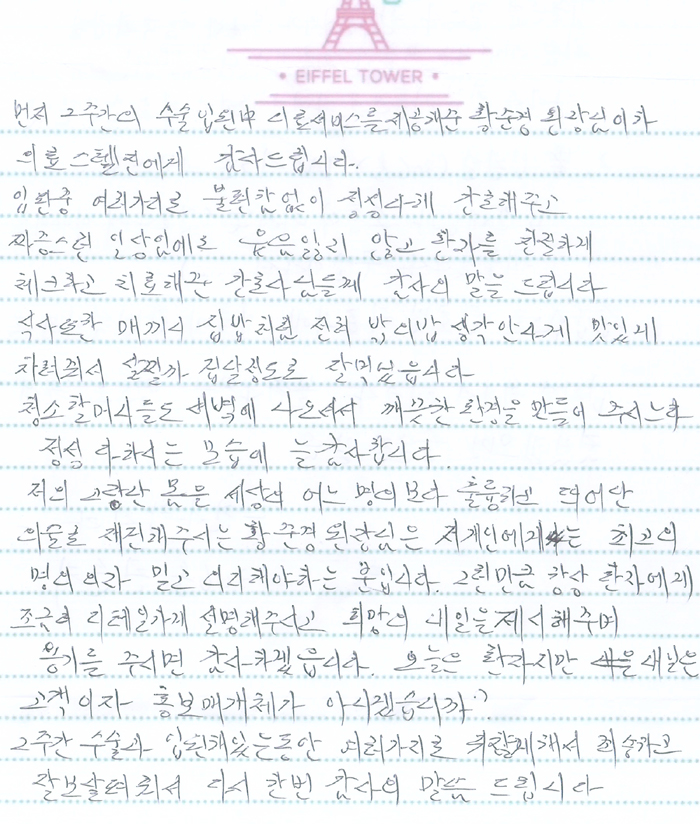 • EIFFEL TOWER •
먼저 2주간의 수술 입원中 의료서비스를 제공해준 황준경 원장님 이하
의료 스텝진에게 감사드립니다.
입원중 여러가지로 불편함없이 정성다해 간호해주고
짜증스런 일상임에도 웃음잃지 않고 환자를 친절하게
체크하고 치료해준 간호사님들께 감사의 말을 드립니다
식사또한 매끼니 집밥처럼 전혀 밖의밥 생각안나게 맛있게
차려줘서 살찔까 겁날정도로 잘먹었읍니다
청소할머니들도 새벽에 나오셔서 깨끗한 환경을 만들어 주시느라
정성 다하시는 모습에 늘감사합니다.
저의 고장난 몸을 세상의 어느 명의보다 훌륭하고 뛰어난
의술로 재건해주시는 황준경 원장님은 저개인에게는 최고의
명의 의라 믿고 의지해야하는 분입니다. 그런만큼 항상 환자에게
조금더 디테일하게 설명해주시고 희망의 내일을 제시해주며
용기를 주시면 감사하겠읍니다. 오늘은 환자지만 내일은
고객이자 홍보매개체가 아니겠습니까?
2주간 수술과 입원해있는동안 여러가지로 까칠하게해서 죄송하고
잘보살펴줘서 다시 한번 감사의 말씀 드립니다